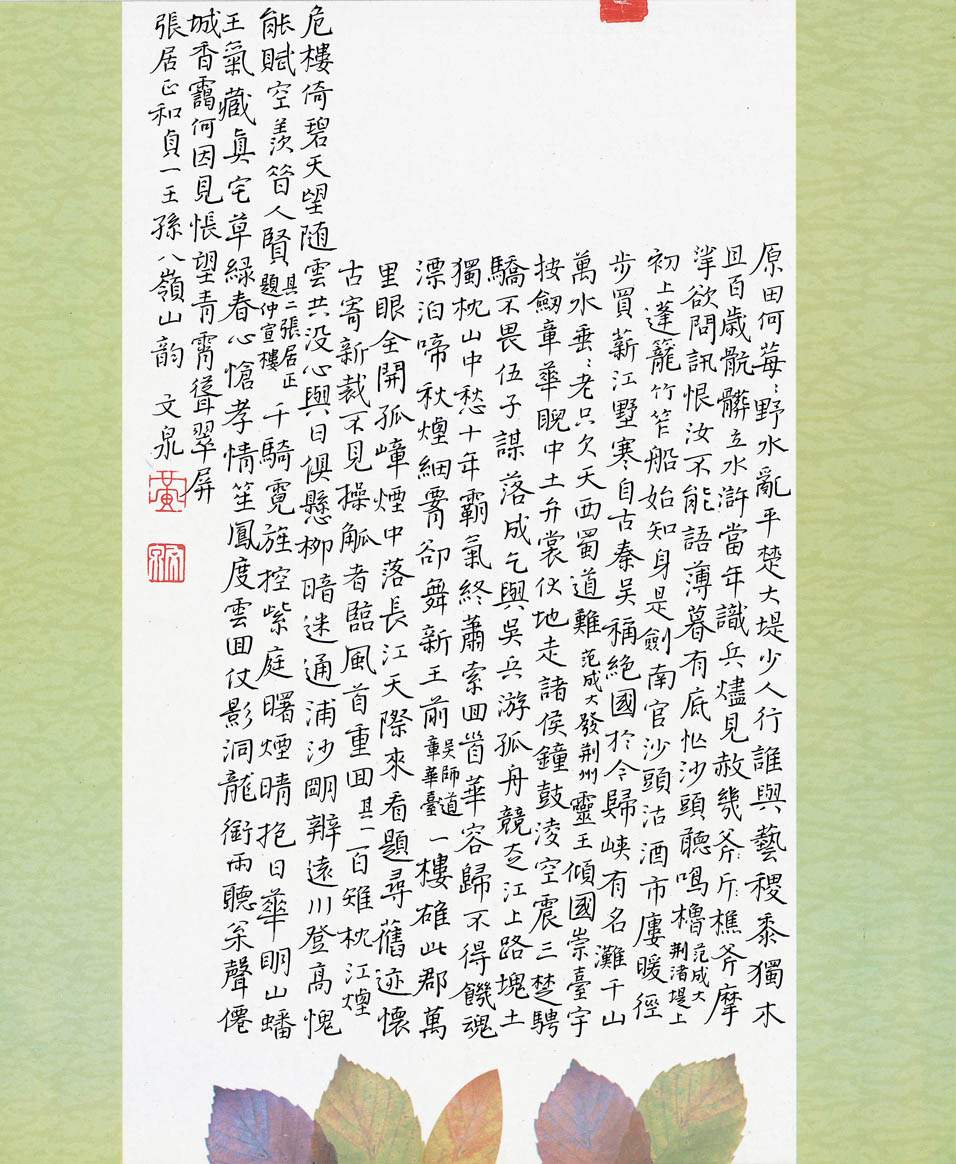 原田何莓〻野水亂平楚大堤少人行誰與藝稷黍獨木
且百歲骯髒立水滸當年識兵燼見赦幾斧斤樵斧摩
挲欲問訊恨汝不能語薄暮有底忙沙頭聽鳴櫓范成大荆渚堤上
初上蓬籠竹笮船始知身是劍南官沙頭沽酒市廔暖徑
步買薪江墅寒自古秦吳稱絕國於今歸峽有名灘千山
萬水垂〻老只欠天西蜀道難范成大發荆州靈王傾國崇臺宇
按劒章華睨中土弁裳伏地走諸侯鐘鼓淩空震三楚騁
驕不畏伍子謀落成乞與吳兵游孤舟競走江上路塊土
獨枕山中愁十年霸氣終蕭索回首華容歸不得饑魂
漂泊啼秋煙細霄卻舞新王前吳師道章華臺一樓雄此郡萬
里眼全開孤嶂煙中落長江天際來看題尋舊迹懷
古寄新裁不見操觚者臨風首重回其一百雉枕江煙
危樓倚碧天望随雲共没心與日俱懸柳暗迷通浦沙明辨遠川登高愧
能賦空羨昔人賢其二張居正題仲宣樓千騎霓旌控紫庭曙煙晴抱日華明山蟠
王氣藏真宅草緑春心愴孝情笙鳳度雲回仗影洞龍銜雨聽泉聲僊
城香靄何因見悵望青霄聳翠屏
張居正和貞一王孫八嶺山韵 文泉